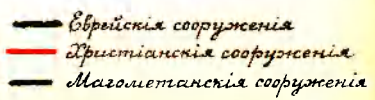 Еврейскія сооруженія
Христіанскія сооруженія
Магометанскія сооруженія